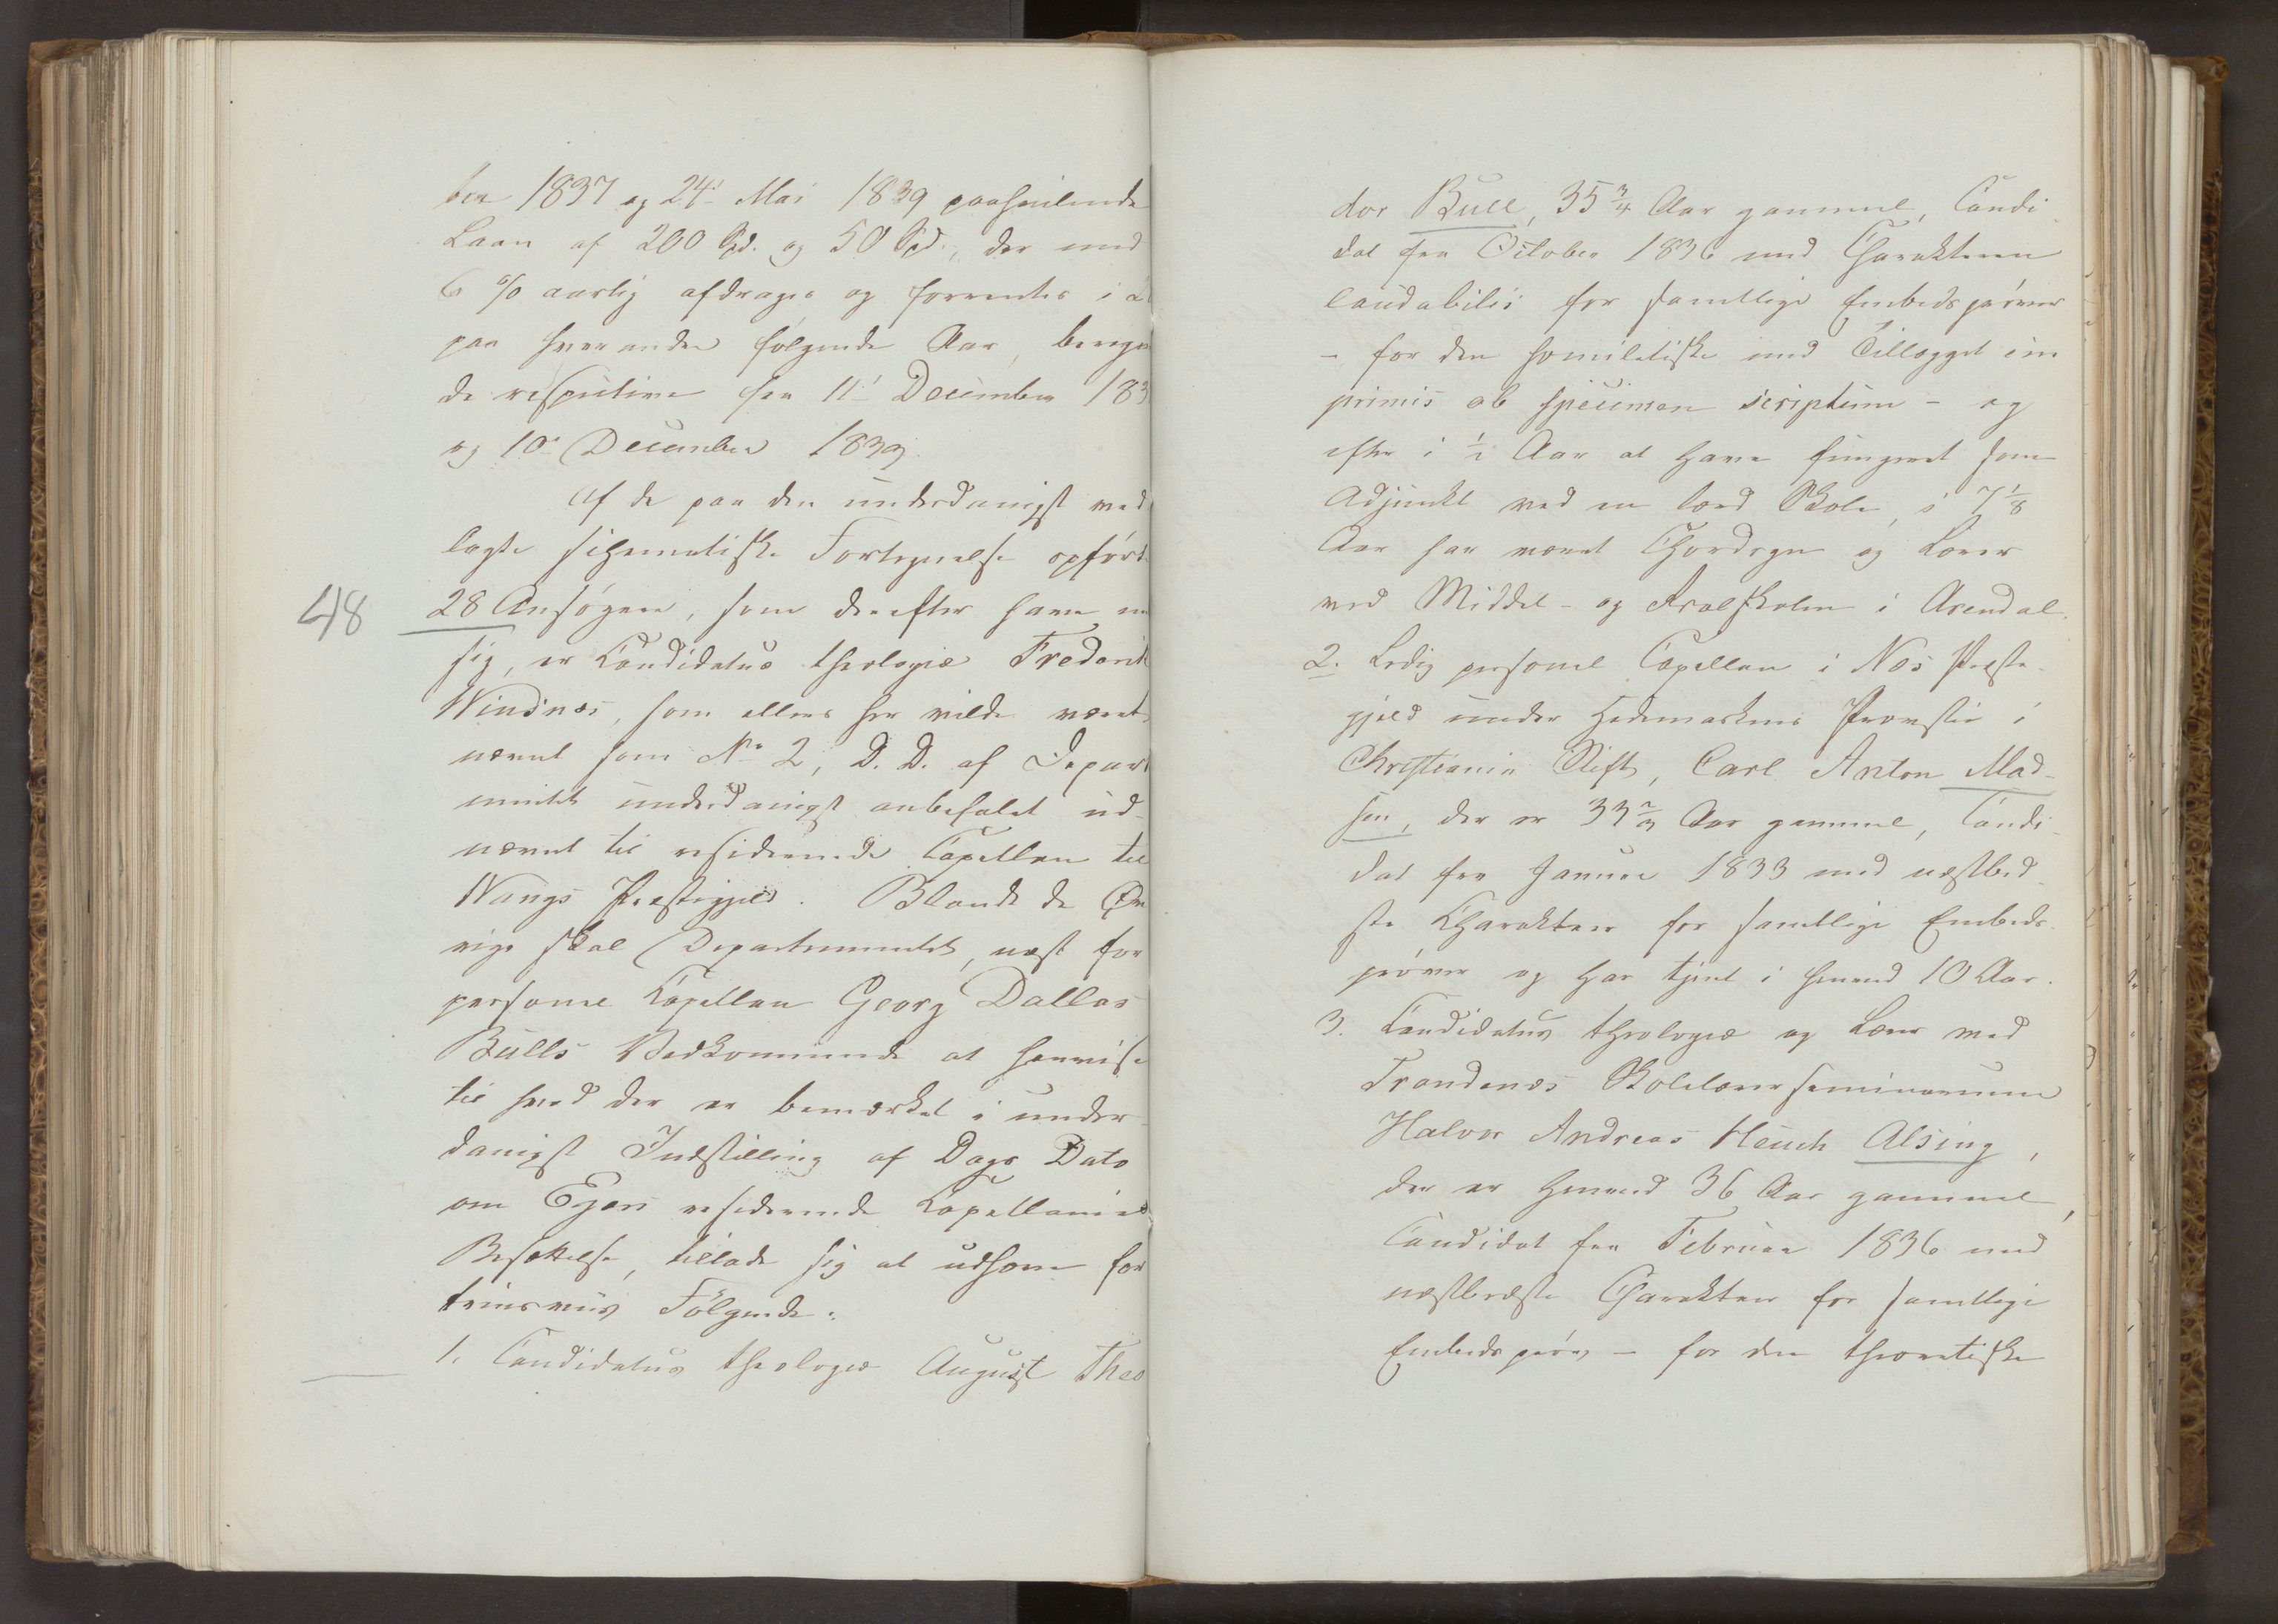 ber 1837 og 24de Mai 1839 paahvilende
Laan af 200 Spd. og 50 Spd., der med
6 % aarlig afdrages og forrentes i
paa hverandre følgende Aar, bereg
de respective fra 11te December 183
og 10de December 1839.
Af de paa den underdanigst ved
lagte schematiske Fortegnelse opført
48
28 Ansøgere, som derefter have
sig, er Candidatus theologiæ Frederik
Windnæs, som ellers her vilde været
nævnt som No 2, D. D. af Depart
mentet underdanigst anbefalet ud-
nævnt til residerende Capellan til
Vangs Præstegjeld. Blandt de Øv
rige skal Departementet, næst for
personel Capellan Georg Dallas
Bulls Vedkommende at henvise
til hvad der er bemærket i under-
danigst Indstilling af Dags Dato
om Egers residerende Capellanies
Besættelse, tillade sig at udhæve for
trinsviis Følgende:
1. Candidatus theologiæ August Theo
dor Bull, 35 3/4 Aar gammel, Candi-
dat fra October 1836 med Charakteren
laudabilis for samtlige Embedsprøver
- for den homiletiske med Tillægget im
primis ob specimen scriptum - og
efter i 1/2 Aar at have fungeret som
Adjunkt ved en lærd Skole, i 7 1/8
Aar har været Chordegn og Lærer
ved Middel- og Realskolen i Arendal.
2. Ledig personel Capellan i Næs Præste-
gjeld under Hedemarkens Provstie i
Christiania Stift, Carl Anton Mad-
sen, der er 33 2/3 Aar gammel, Candi-
dat fra Januar 1833 med næstbed-
ste Charakteer for samtlige Embeds-
prøver og har tjent i henved 10 Aar.
3. Candidatus theologiæ og Lærer ved
Trondenæs Skolelærerseminarium
Halvor Andreas Heuch Alsing,
der er henved 36 Aar gammel,
Candidat fra Februar 1836 med
næstbedste Charakteer for samtlige
Embedsprøver - for den theoretiske